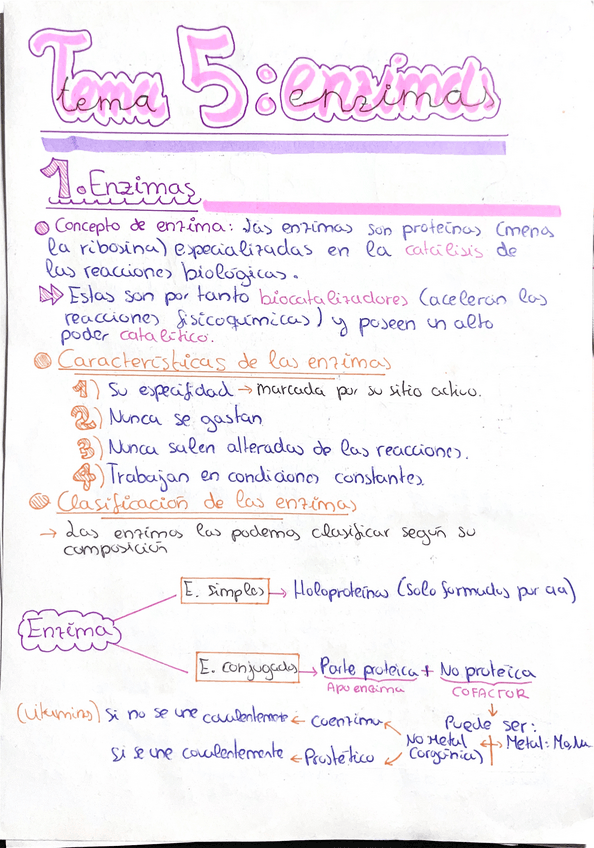 Tema 5: enzimas
tema enzimas
1. Enzimas
Concepto de enzima: las enzimas son proteínas (menos
la ribosina) especializadas en la catálisis de
las reacciones biológicas.
Estas son por tanto biocatalizadores (aceleran las
reacciones fisicoquímicas) y poseen un alto
poder catalítico.
Características de las enzimas
1) Su especifidad → marcada por su sitio activo.
2) Nunca se gastan
3) Nunca salen alteradas de las reacciones.
4) Trabajan en condiciones constantes.
Clasificación de las enzimas
→ Las enzimas las podemos clasificar según su
composición
E. simples → Holoproteínas (solo formadas por aa)
Enzima
E. conjugadas → Parte proteica + No proteica
Apoenzima COFACTOR
(vitaminas) Si no se une covalentemente ← Coenzima Puede ser:
No Metal ↔ Metal:
Si se une covalentemente ← Prostético (orgánica)